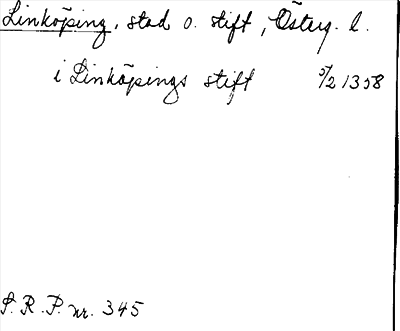 Linköping, stad o. stift, Österg. l.
i Linköpings stift 5/2 1358
S. R. P. nr. 345